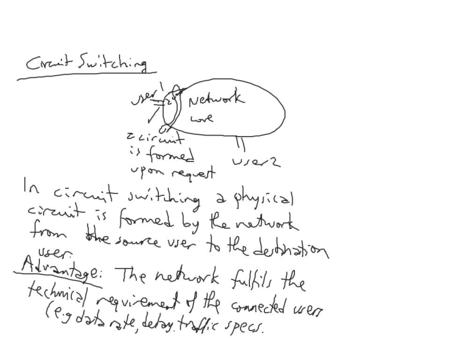 Circuit Switching
user1
Network
core
a circuit
is formed
upon request
user2
In circuit switching a physical
circuit is formed by the network
from the source user to the destination
user.
Advantage: The network fulfils the
technical requirement of the connected users
(e.g data rate, delay, traffic specs.